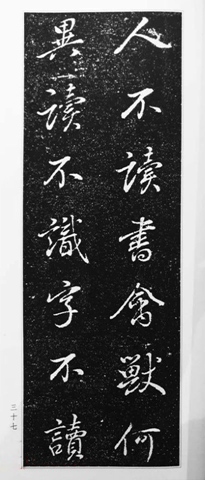 人不讀書禽獸何
異讀不識字不讀
三十七